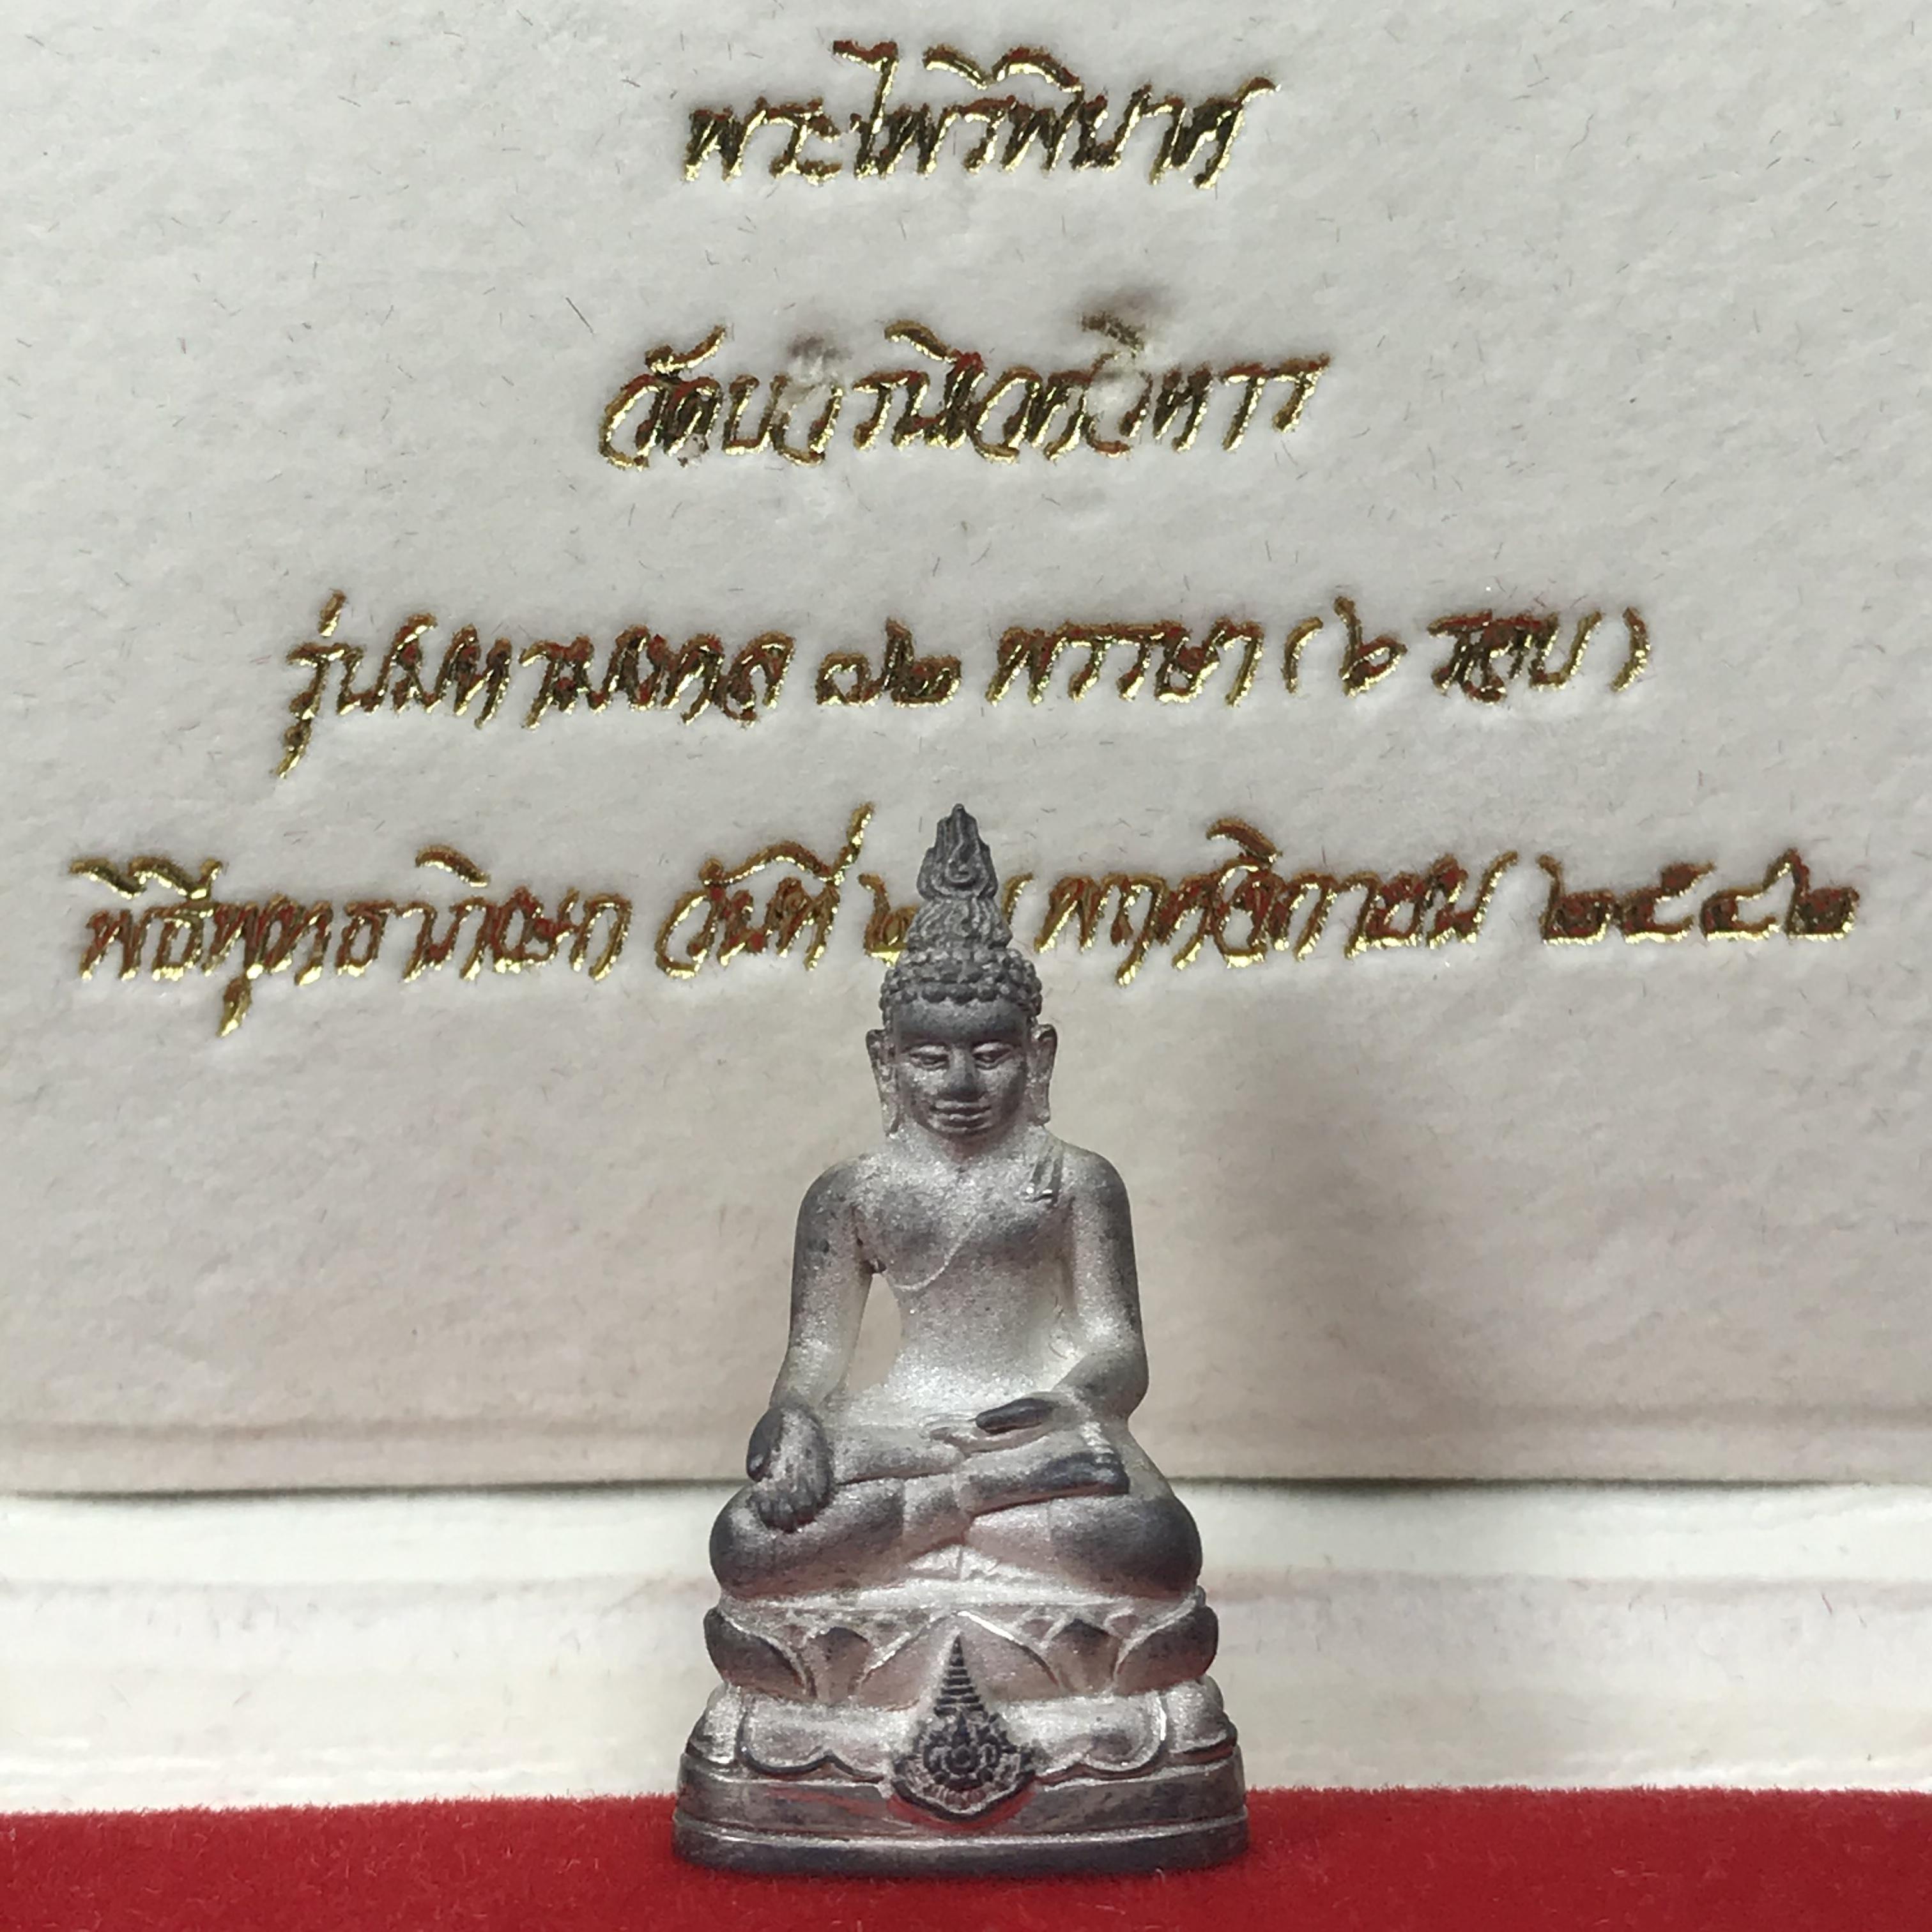 พระไพรีพินาศ
วัดบวรนิเวศวิหาร
รุ่นมหามงคล ๗๒ พรรษา (๖ รอบ)
พิธีพุทธาภิเษก วันที่ พฤศจิกายน ๒๕๔๒